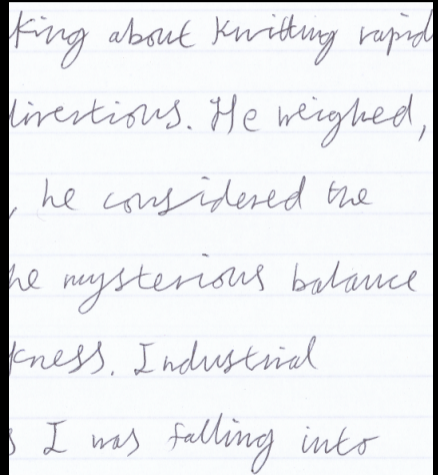 king about knitting rapid
directions. He weighed,
, he considered the
he mysterious balance
kness. Industrial
s I was falling into